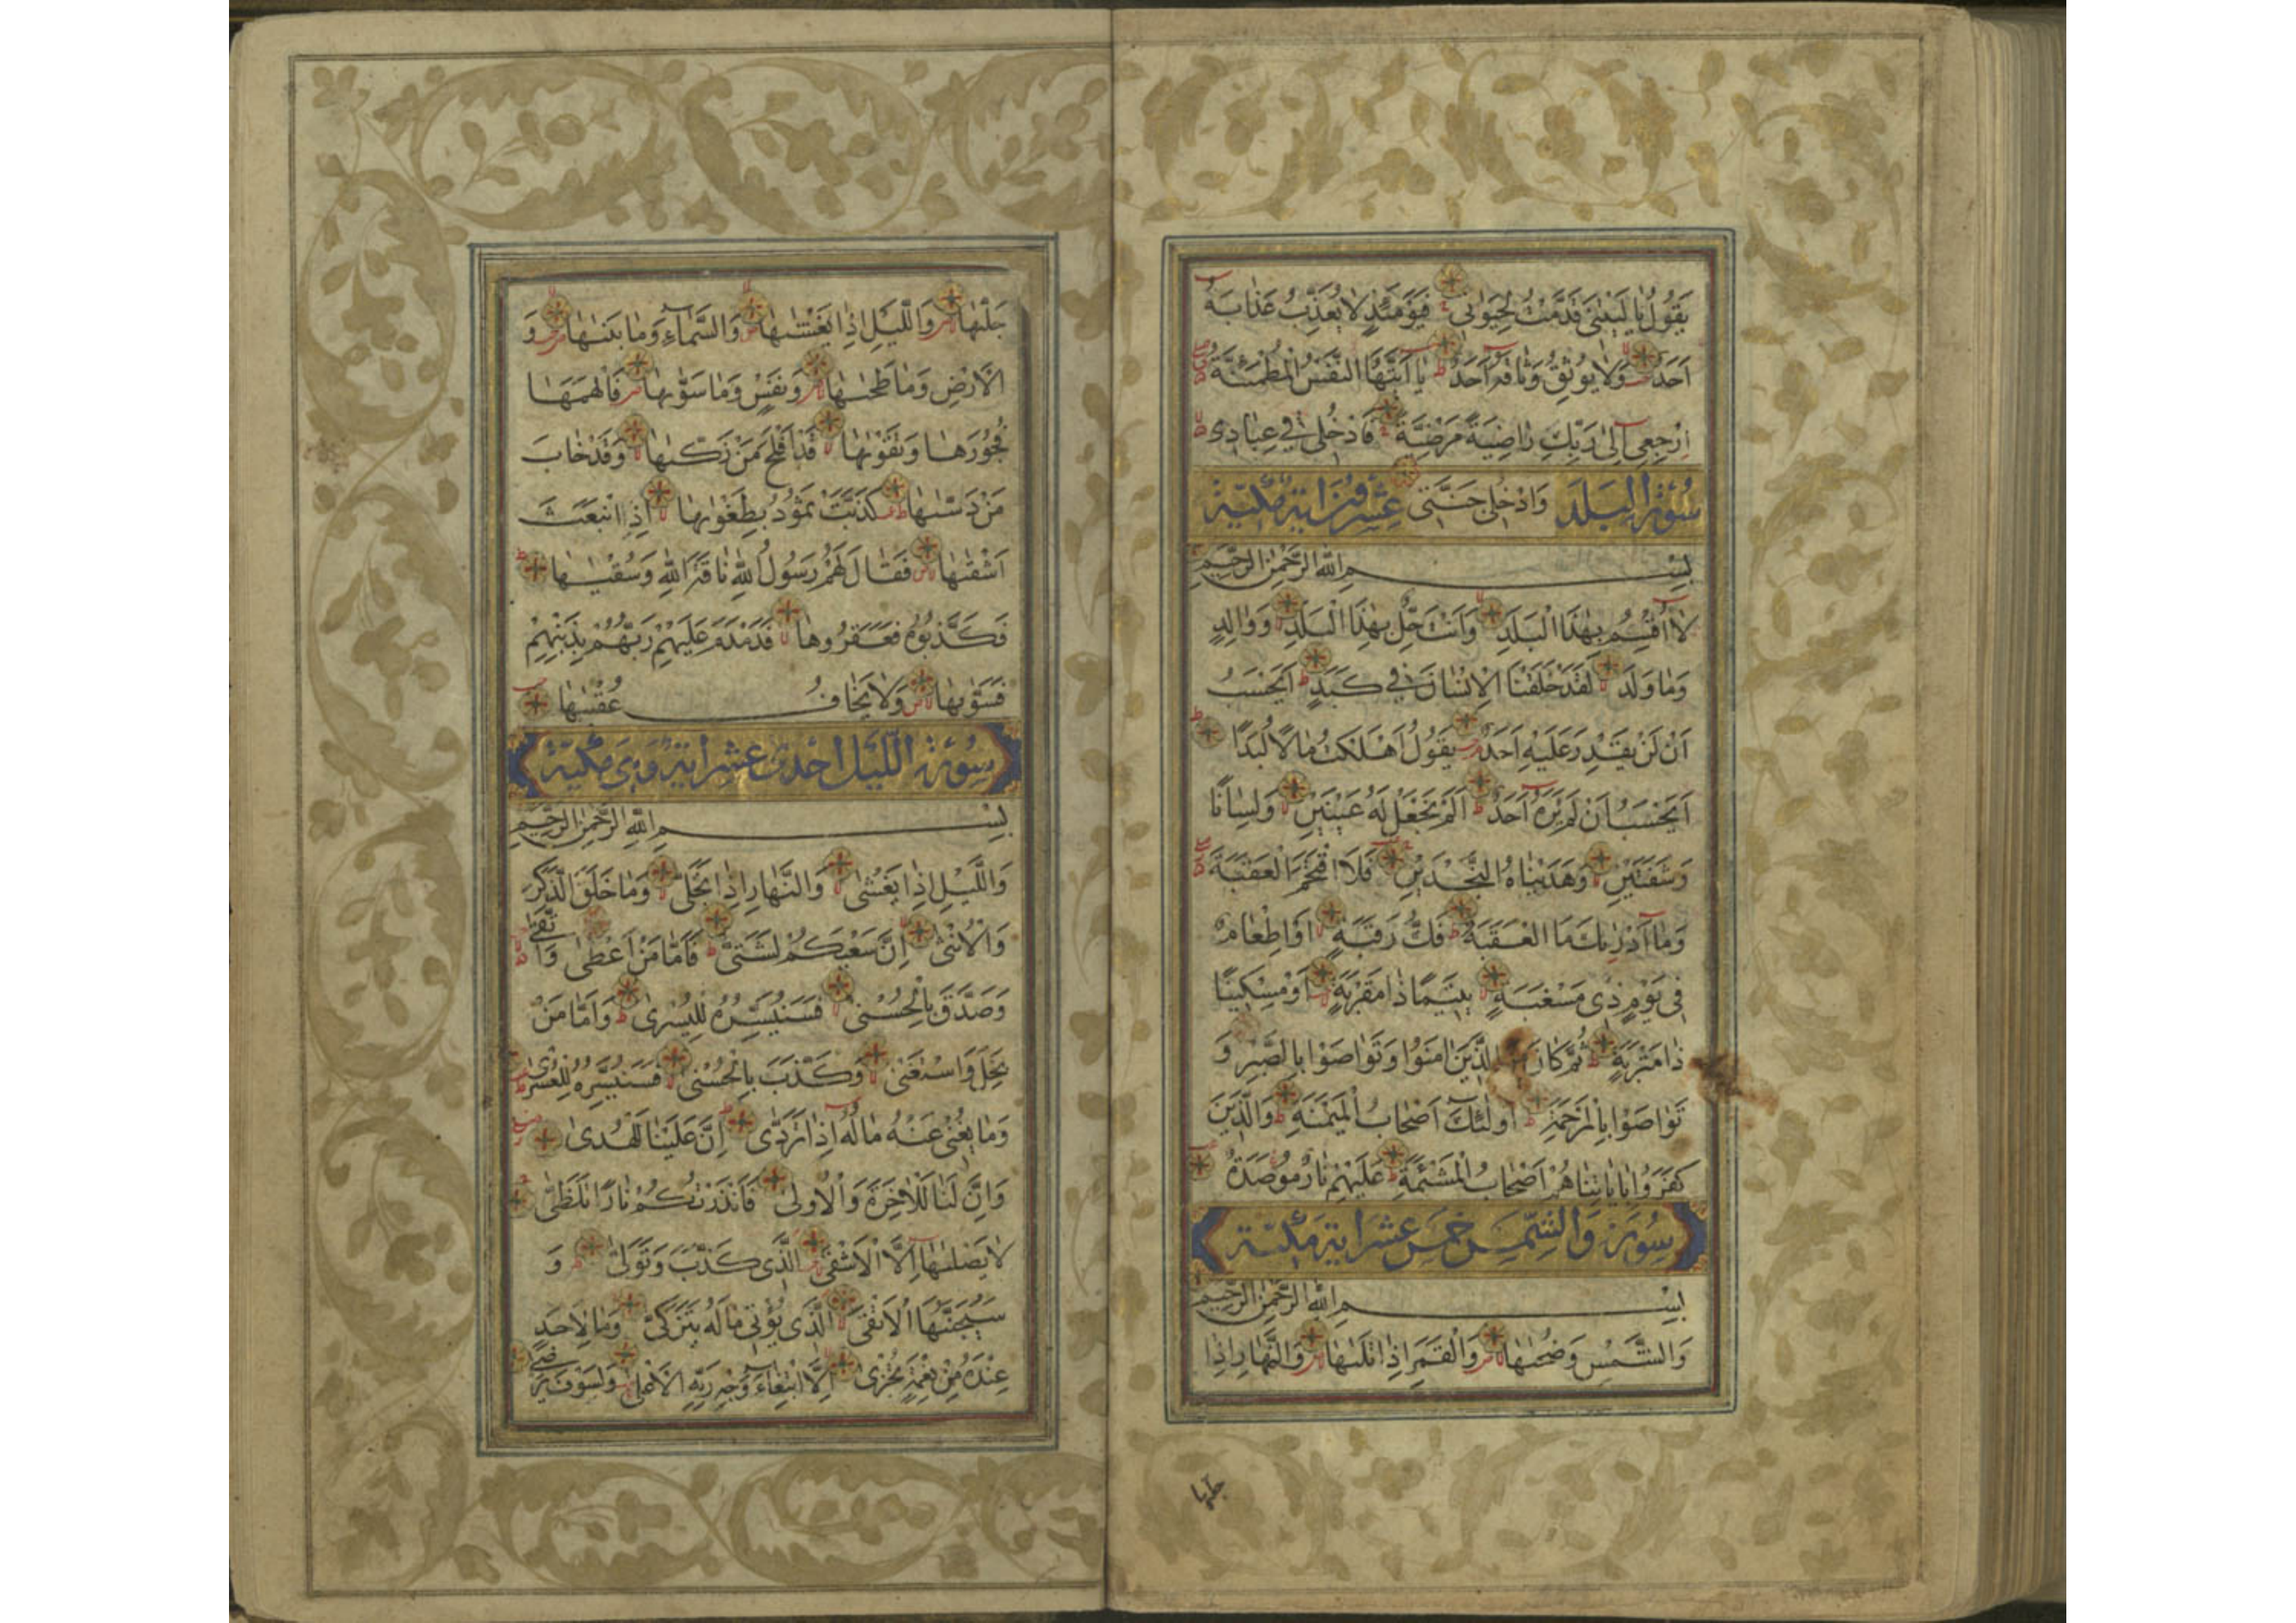 يَقُولُ يَا لَيْتَنِى قَدَّمْتُ لِحَيَوتِى فَيَوْمَئِذٍ لَا يُعَذِّبُ عَذَابَهُ
اَحَدٌ وَلَا يُوثِقُ وَثَاقَهُ اَحَدٌ يَا اَيَّتُهَا النَّفْسُ الْمُطْمَئِنَّةُ
اِرْجِعِى اِلٰى رَبِّكِ رَاضِيَةً مَرْضِيَّةً فَادْخُلِى فِى عِبَادِى
سُورَةُ الْبَلَدِ وَادْخُلِى جَنَّتِى عِشْرُونَ اٰيَة مَكِّيَّة
بِسْمِ اللهِ الرَّحْمٰنِ الرَّحِيمِ
لَا اُقْسِمُ بِهٰذَا الْبَلَدِ وَاَنْتَ حِلٌّ بِهٰذَا الْبَلَدِ وَوَالِدٍ
وَمَا وَلَدَ لَقَدْ خَلَقْنَا الْاِنْسَانَ فِى كَبَدٍ اَيَحْسَبُ
اَنْ لَنْ يَقْدِرَ عَلَيْهِ اَحَدٌ يَقُولُ اَهْلَكْتُ مَالًا لُبَدًا
اَيَحْسَبُ اَنْ لَمْ يَرَهُ اَحَدٌ اَلَمْ نَجْعَلْ لَهُ عَيْنَيْنِ وَلِسَانًا
وَشَفَتَيْنِ وَهَدَيْنَاهُ النَّجْدَيْنِ فَلَا اقْتَحَمَ الْعَقَبَةَ
وَمَا اَدْرٰيكَ مَا الْعَقَبَةُ فَكُّ رَقَبَةٍ اَوْ اِطْعَامٌ
فِى يَوْمٍ ذِى مَسْغَبَةٍ يَتِيمًا ذَا مَقْرَبَةٍ اَوْ مِسْكِينًا
ذَا مَتْرَبَةٍ ثُمَّ كَانَ مِنَ الَّذِينَ اٰمَنُوا وَتَوَاصَوْا بِالصَّبْرِ وَ
تَوَاصَوْا بِالْمَرْحَمَةِ اُولٰئِكَ اَصْحَابُ الْمَيْمَنَةِ وَالَّذِينَ
كَفَرُوا بِاٰيَاتِنَا هُمْ اَصْحَابُ الْمَشْئَمَةِ عَلَيْهِمْ نَارٌ مُوصَدَةٌ
سُورَة وَالشَّمْسِ خَمْسَ عَشَرَ اٰيَة مَكِّيَّة
بِسْمِ اللهِ الرَّحْمٰنِ الرَّحِيمِ
وَالشَّمْسِ وَضُحٰيهَا وَالْقَمَرِ اِذَا تَلٰيهَا وَالنَّهَارِ اِذَا
جليها
جَلّٰيهَا وَاللَّيْلِ اِذَا يَغْشٰيهَا وَالسَّمَاءِ وَمَا بَنٰيهَا وَ
الْاَرْضِ وَمَا طَحٰيهَا وَنَفْسٍ وَمَا سَوّٰيهَا فَاَلْهَمَهَا
فُجُورَهَا وَتَقْوٰيهَا قَدْ اَفْلَحَ مَنْ زَكّٰيهَا وَقَدْ خَابَ
مَنْ دَسّٰيهَا كَذَّبَتْ ثَمُودُ بِطَغْوٰيهَا اِذِ انْبَعَثَ
اَشْقٰيهَا فَقَالَ لَهُمْ رَسُولُ اللهِ نَاقَةَ اللهِ وَسُقْيٰيهَا
فَكَذَّبُوهُ فَعَقَرُوهَا فَدَمْدَمَ عَلَيْهِمْ رَبُّهُمْ بِذَنْبِهِمْ
فَسَوّٰيهَا وَلَا يَخَافُ عُقْبٰيهَا
سُورَةُ اللَّيْلِ اِحْدٰى عَشَرَ اٰيَة وَهِىَ مَكِّيَّة
بِسْمِ اللهِ الرَّحْمٰنِ الرَّحِيمِ
وَاللَّيْلِ اِذَا يَغْشٰى وَالنَّهَارِ اِذَا تَجَلّٰى وَمَا خَلَقَ الذَّكَرَ
وَالْاُنْثٰى اِنَّ سَعْيَكُمْ لَشَتّٰى فَاَمَّا مَنْ اَعْطٰى وَاتَّقٰى
وَصَدَّقَ بِالْحُسْنٰى فَسَنُيَسِّرُهُ لِلْيُسْرٰى وَاَمَّا مَنْ
بَخِلَ وَاسْتَغْنٰى وَكَذَّبَ بِالْحُسْنٰى فَسَنُيَسِّرُهُ لِلْعُسْرٰى
وَمَا يُغْنِى عَنْهُ مَالُهُ اِذَا تَرَدّٰى اِنَّ عَلَيْنَا لَلْهُدٰى
وَاِنَّ لَنَا لَلْاٰخِرَةَ وَالْاُولٰى فَاَنْذَرْتُكُمْ نَارًا تَلَظّٰى
لَا يَصْلٰيهَا اِلَّا الْاَشْقٰى الَّذِى كَذَّبَ وَتَوَلّٰى وَ
سَيُجَنَّبُهَا الْاَتْقٰى الَّذِى يُؤْتِى مَالَهُ يَتَزَكّٰى وَمَا لِاَحَدٍ
عِنْدَهُ مِنْ نِعْمَةٍ تُجْزٰى اِلَّا ابْتِغَاءَ وَجْهِ رَبِّهِ الْاَعْلٰى وَلَسَوْفَ يَرْضٰى